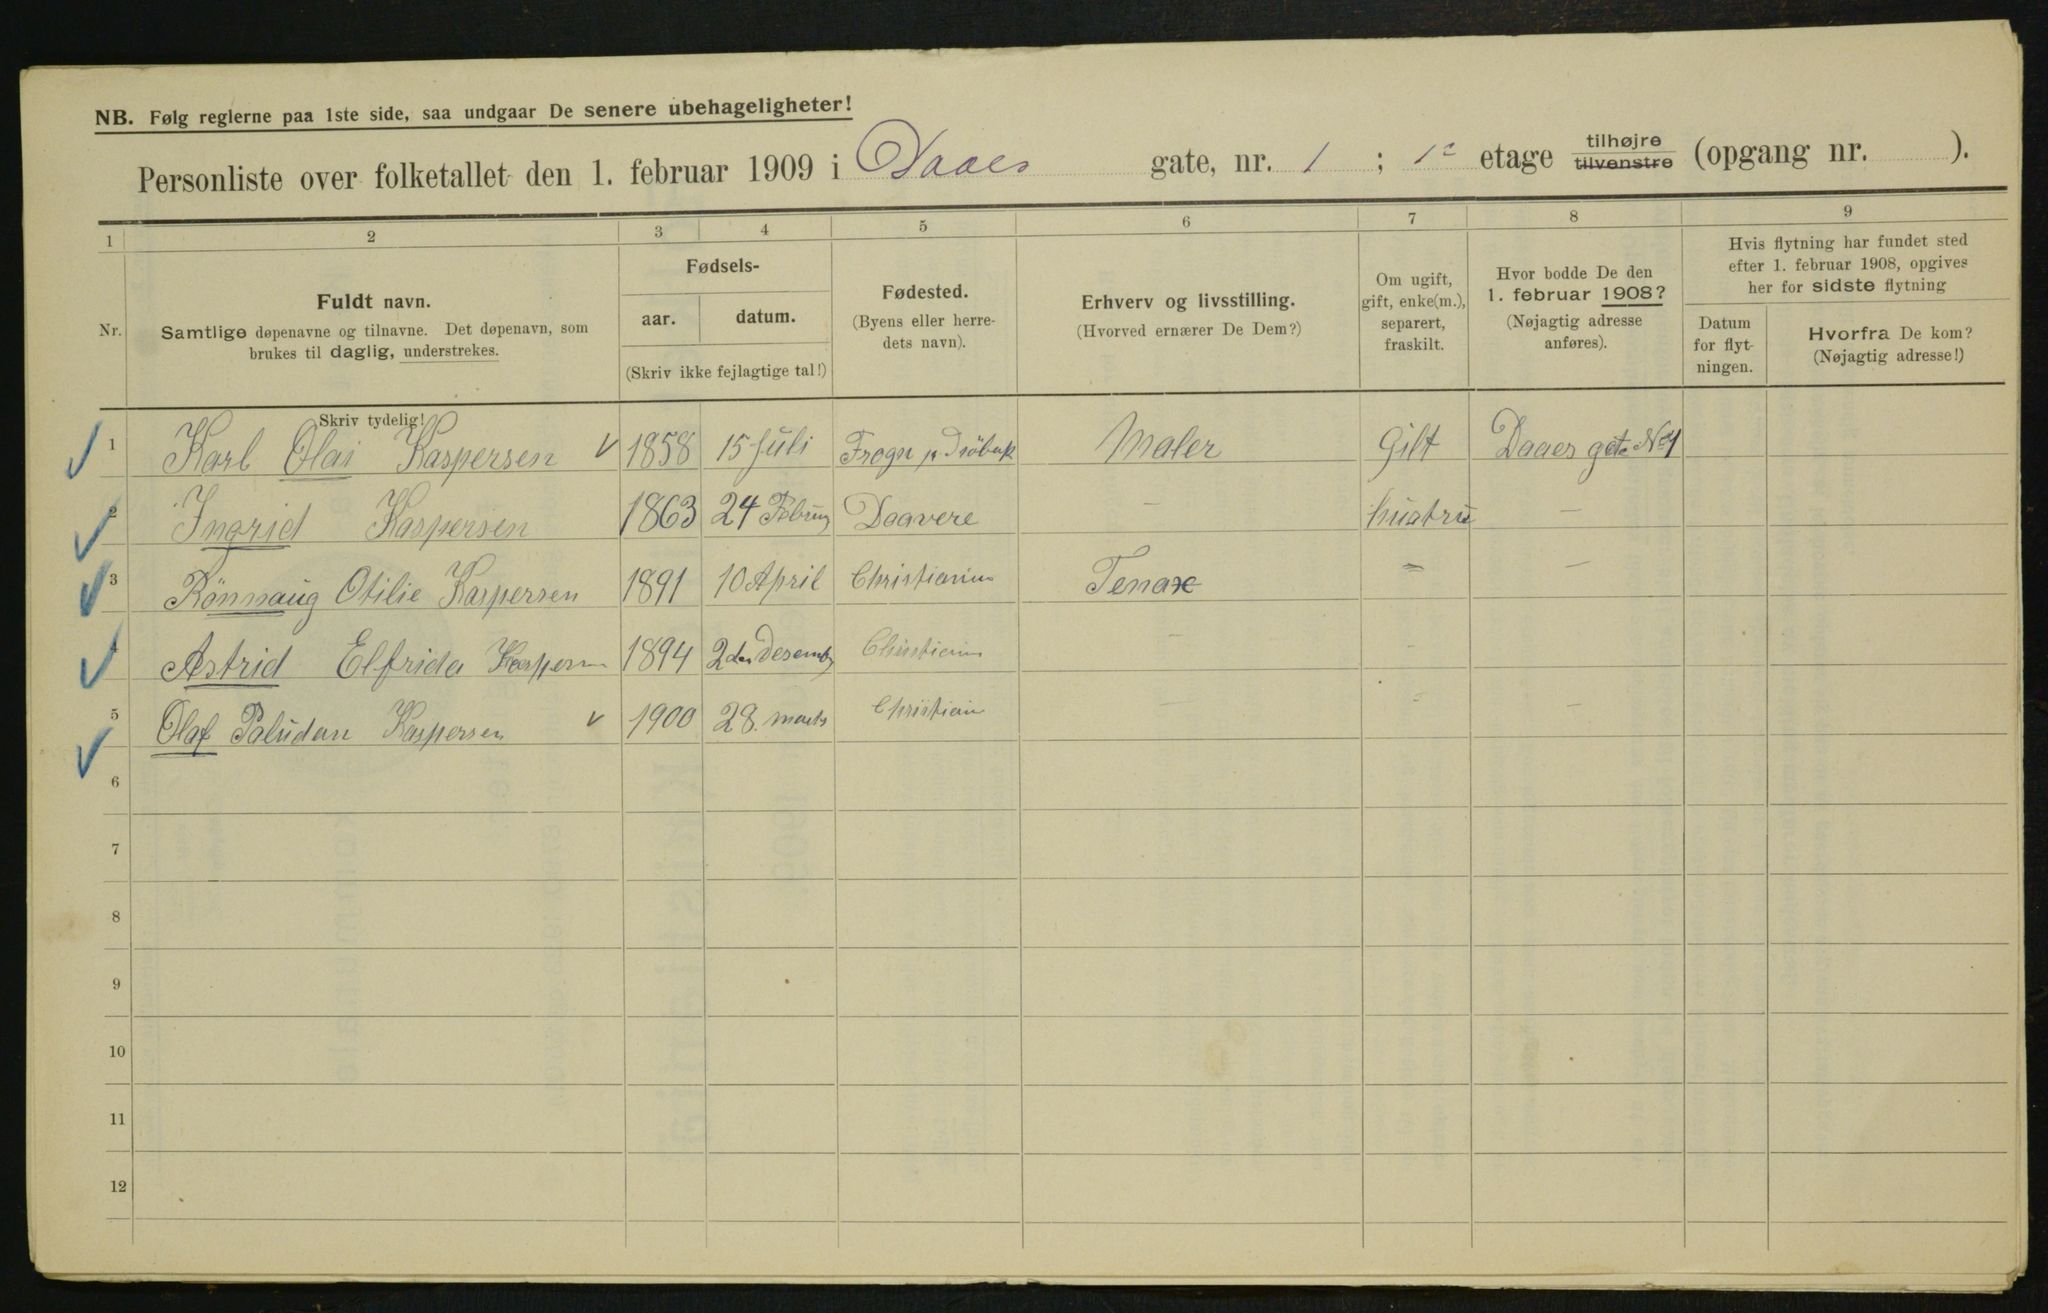 NB. Følg reglerne paa 1ste side, saa undgaar De senere ubehageligheter!
Personliste over folketallet den 1. februar 1909 i Daaes gate, nr. 1 ; 1e etage tilhøjre tilvenstre (opgang nr. ).
1 2 3 4 5 6 7 8 9
Nr.
Fuldt navn.
Samtlige døpenavne og tilnavne. Det døpenavn, som
brukes til daglig, understrekes.
Fødsels-
aar. datum.
(Skriv ikke fejlagtige tal!)
Fødested.
(Byens eller herre-
dets navn).
Erhverv og livsstilling.
(Hvorved ernærer De Dem?)
Om ugift,
gift, enke(m.),
separert,
fraskilt.
Hvor bodde De den
1. februar 1908?
(Nøjagtig adresse
anføres).
Hvis flytning har fundet sted
efter 1. februar 1908, opgives
her for sidste flytning
Datum
for flyt-
ningen.
Hvorfra De kom?
(Nøjagtig adresse!)
Skriv tydelig!
1 Karl Olai Kaspersen 1858 15 Juli Frogn p. Dröbak Maler Gift Daaes gate No 1
2 Ingrid Kaspersen 1863 24 Februa Daavere — hustru —
3 Rönnaug Otilie Kaspersen 1891 10 April Christiania Tenax " —
4 Astrid Elfrida Kaspersen 1894 2den Desemb Christiania — - —
5 Olaf Paludan Kaspersen 1900 28. marts Christian — " —
6
7
8
9
10
11
12